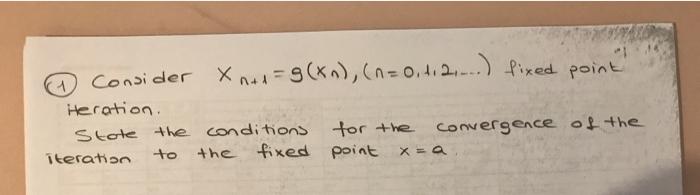 (1) Consider Xn+1 = g(xn), (n=0,1,2,...) fixed point
iteration.
State the conditions for the convergence of the
iteration to the fixed point x = a.